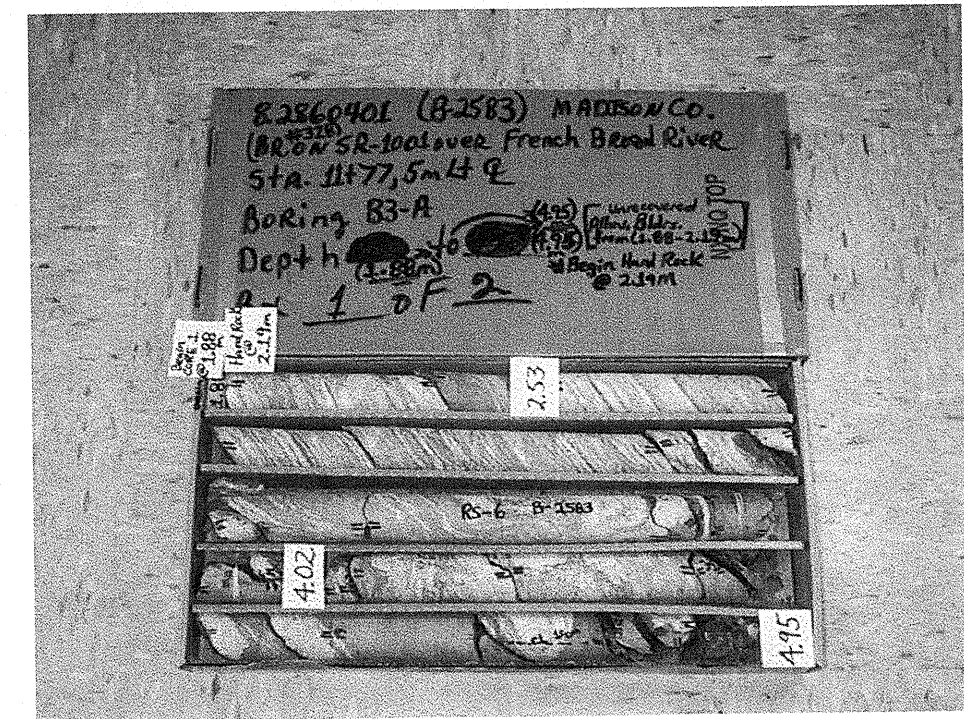 8.2860401 (B-2583) MADISON CO.
(BR #328 ON SR-1001 over French Broad River
Sta. 11+77, 5m Lt ℄
Boring B3-A
Depth to
(1.88m)
(4.95)
(4.95)
m
unrecovered
from (1.88-2.19
Begin Hard Rock
@ 2.19m
1 of 2
TOP
Begin
CORE 1
@ 1.88
m
Hard Rock
@
2.19m
1.88
2.53
RS-6 B-2583
4.02
4.95